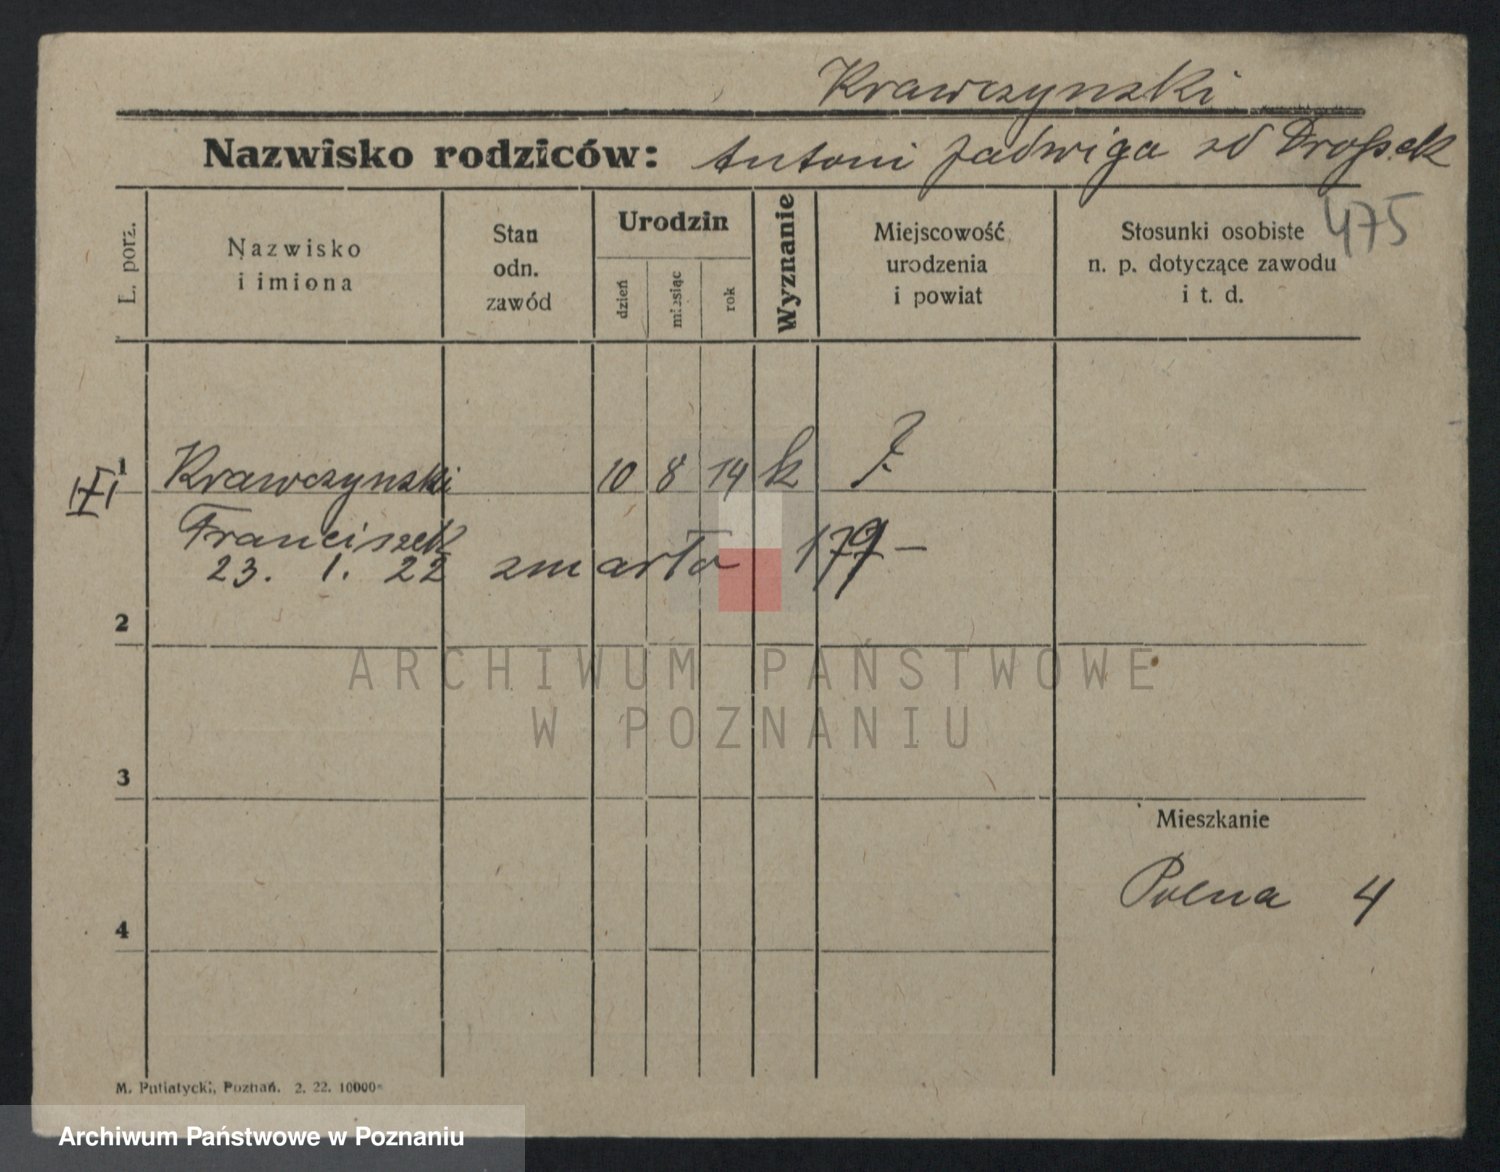 Krawczynski
Nazwisko rodziców: Antoni Jadwiga zd
475
L. porz.
Nazwisko
i imiona
Stan
odn.
zawód
Urodzin
dzień
miesiąc
rok
Wyznanie
Miejscowość
urodzenia
i powiat
Stosunki osobiste
n. p. dotyczące zawodu
i t. d.
1 Krawczynski 10 8 14 k
Franciszek
23. 1. 22 zmarło
2
ARCHIWUM PAŃSTWOWE
W POZNANIU
3
Mieszkanie
Polna 4
4
M. Putiatycki, Poznań. 2. 22. 10000
Archiwum Państwowe w Poznaniu